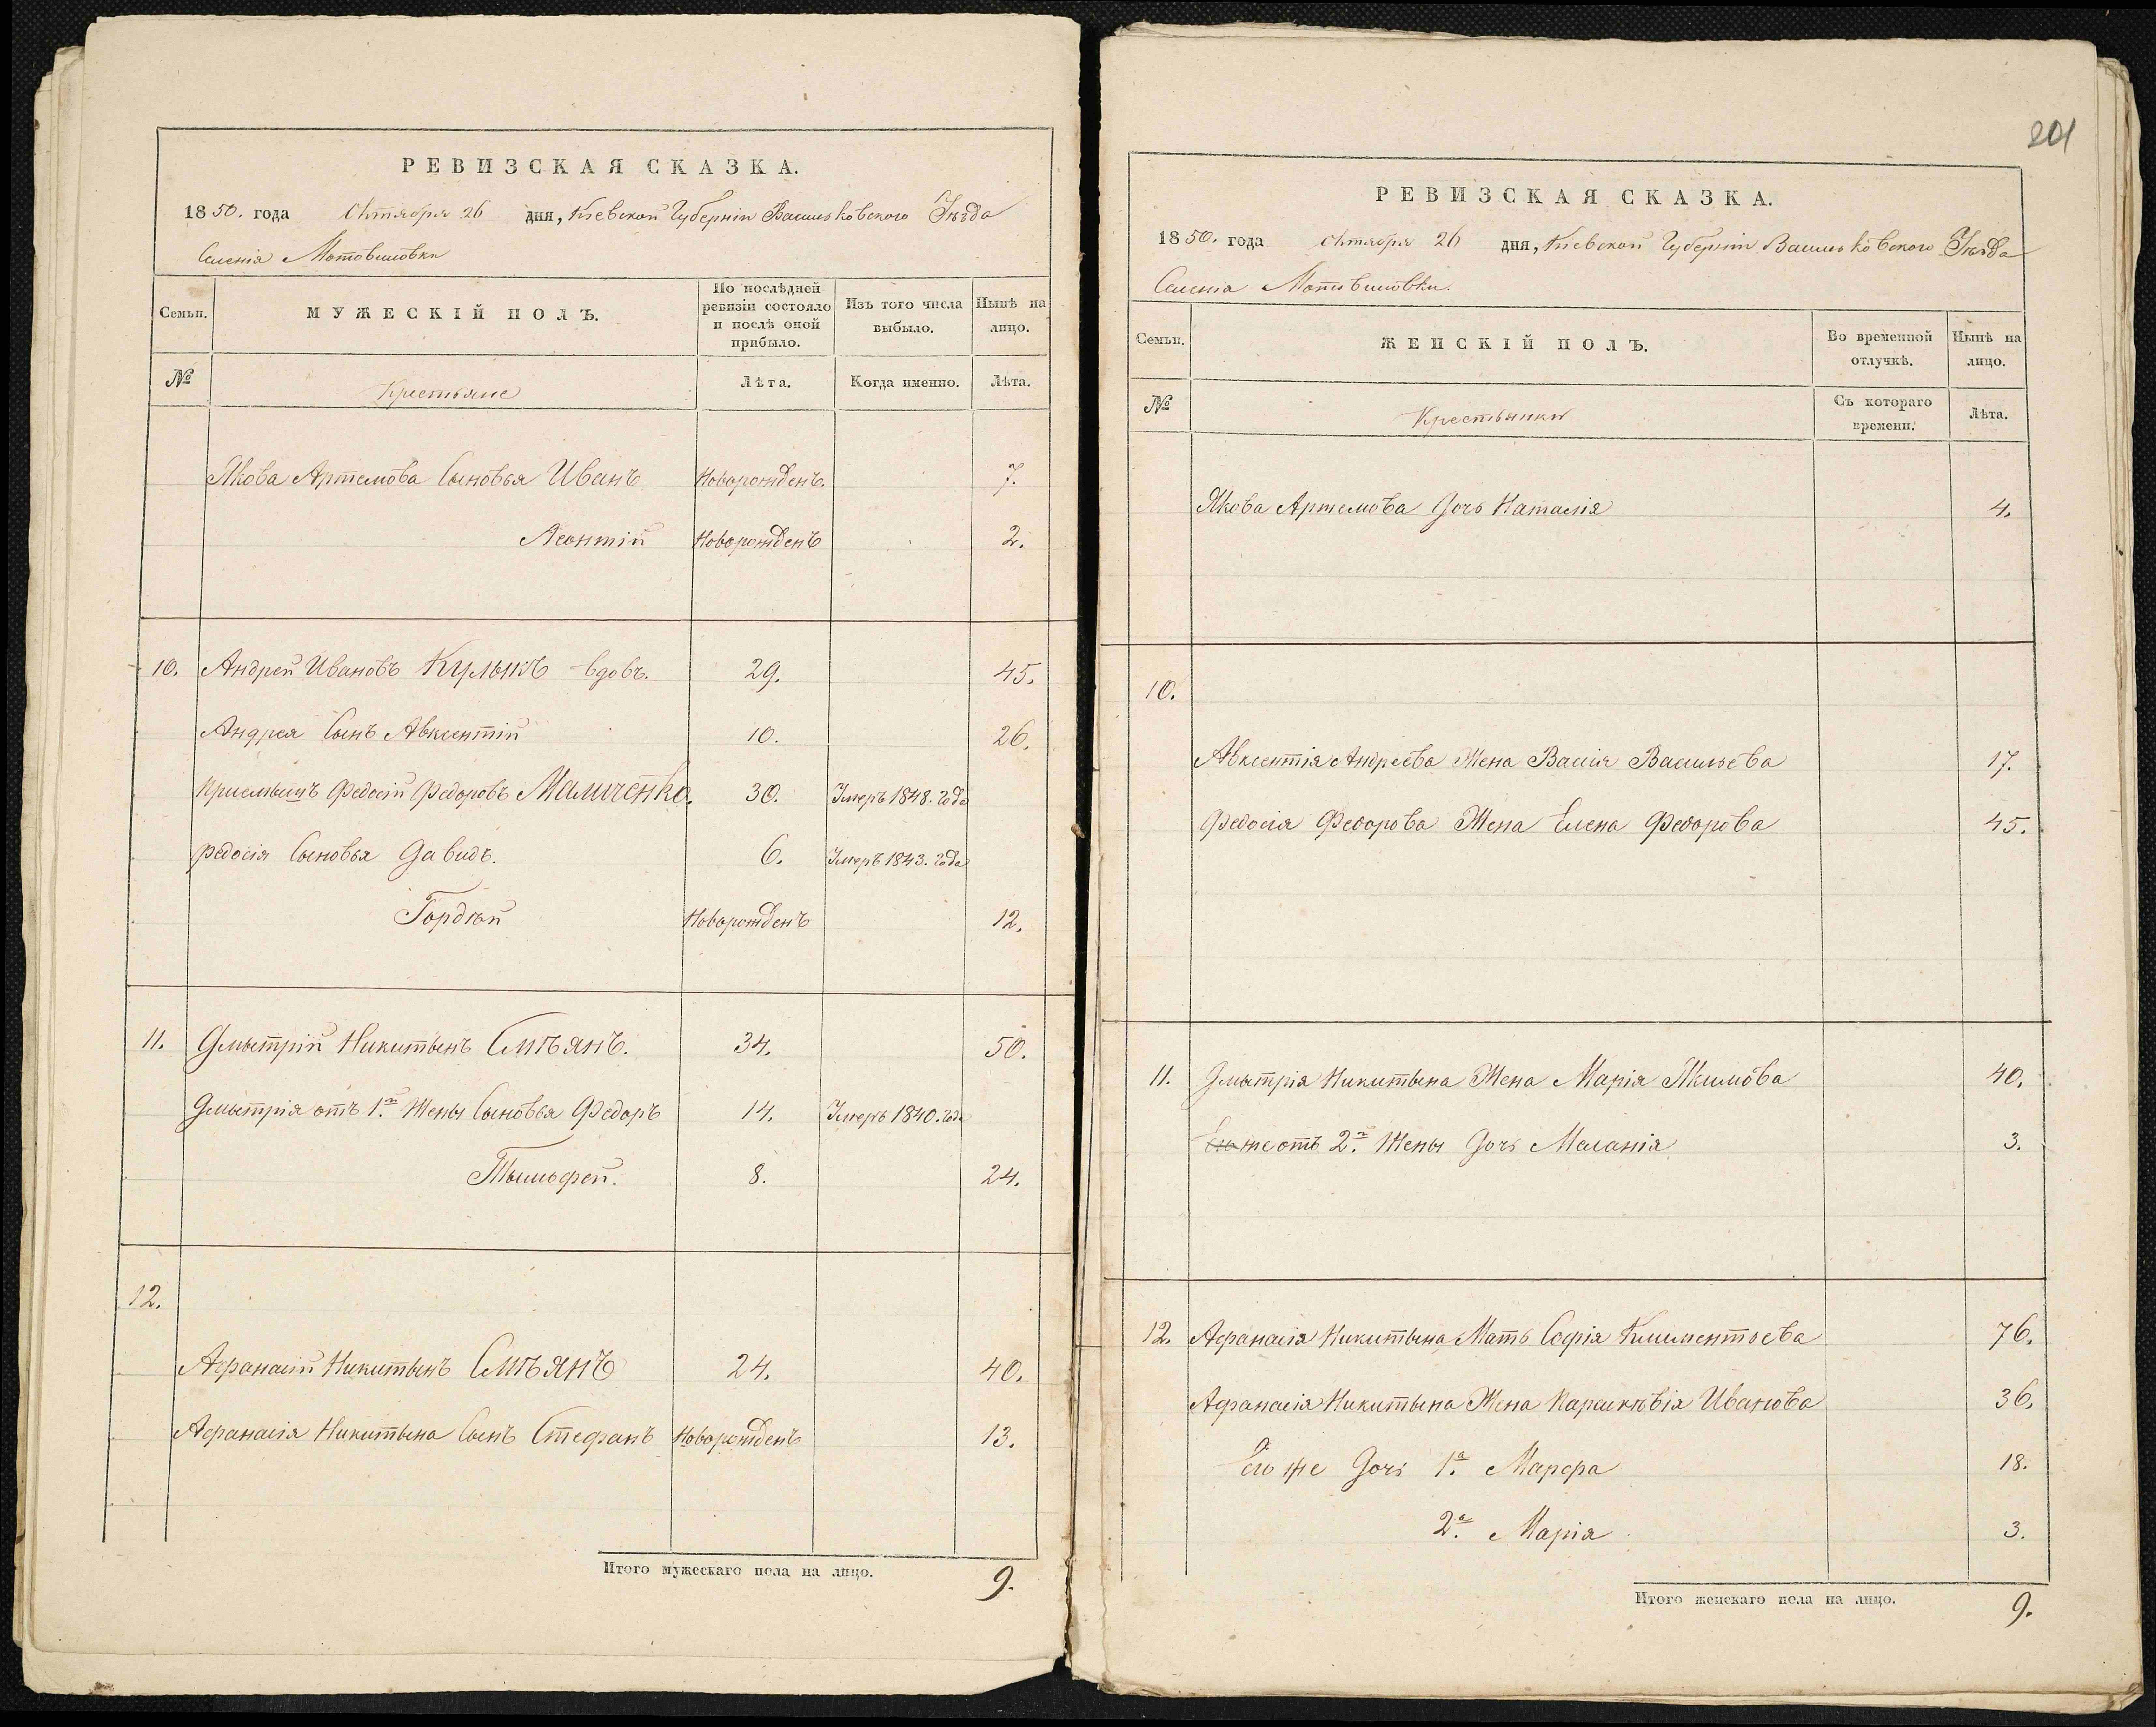 РЕВИЗСКАЯ СКАЗКА.
1850. года Октября 26 дня, Кіевской Губерніи Васильковскаго Уѣзда
Селенія Мотовиловки
Семьи. МУЖЕСКІЙ ПОЛЪ. По послѣдней ревизіи состояло и послѣ оной прибыло. Изъ того числа выбыло. Нынѣ на лицо.
№ Крестьяне Лѣта. Когда именно. Лѣта.
Якова Артемова Сыновья Иванъ Новорожденъ. 7.
Леонтій Новорожденъ 2.
10. Андрей Ивановъ Кулыкъ вдовъ. 29. 45.
Андрея Сынъ Авксентій 10. 26.
Приемышъ Федосій Федоровъ Маличенко. 30. Умеръ 1848. года
Федосія Сыновья Давидъ. 6. Умеръ 1843. года
Гордѣй Новорожденъ 12.
11. Дмытрій Никитынъ Смѣянъ. 34. 50.
Дмытрія отъ 1.й Жены Сыновья Федоръ 14. Умеръ 1840. года
Тымофей. 8. 24.
12.
Афанасій Никитынъ Смѣянъ 24. 40.
Афанасія Никитына Сынъ Стефанъ Новорожденъ 13.
Итого мужескаго пола на лицо. 9.
201
РЕВИЗСКАЯ СКАЗКА.
1850. года Октября 26 дня, Кіевской Губерніи Васильковскаго Уѣзда
Селенія Мотовиловки.
Семьи. ЖЕНСКІЙ ПОЛЪ. Во временной отлучкѣ. Нынѣ на лицо.
№ Крестьянки Съ котораго времени. Лѣта.
Якова Артемова Дочь Наталія 4.
10.
Авксентія Андреева Жена Васса Васильева 17.
Федосія Федорова Жена Елена Федорова 45.
11. Дмытрія Никитына Жена Марія Якимова 40.
Его же отъ 2.й Жены Дочь Меланія 3.
12. Афанасія Никитына Мать Софія Климентьева 76.
Афанасія Никитына Жена Параскѣвія Иванова 36.
Его же Дочь 1.а Марфа 18.
2.а Марія 3.
Итого женскаго пола на лицо. 9.